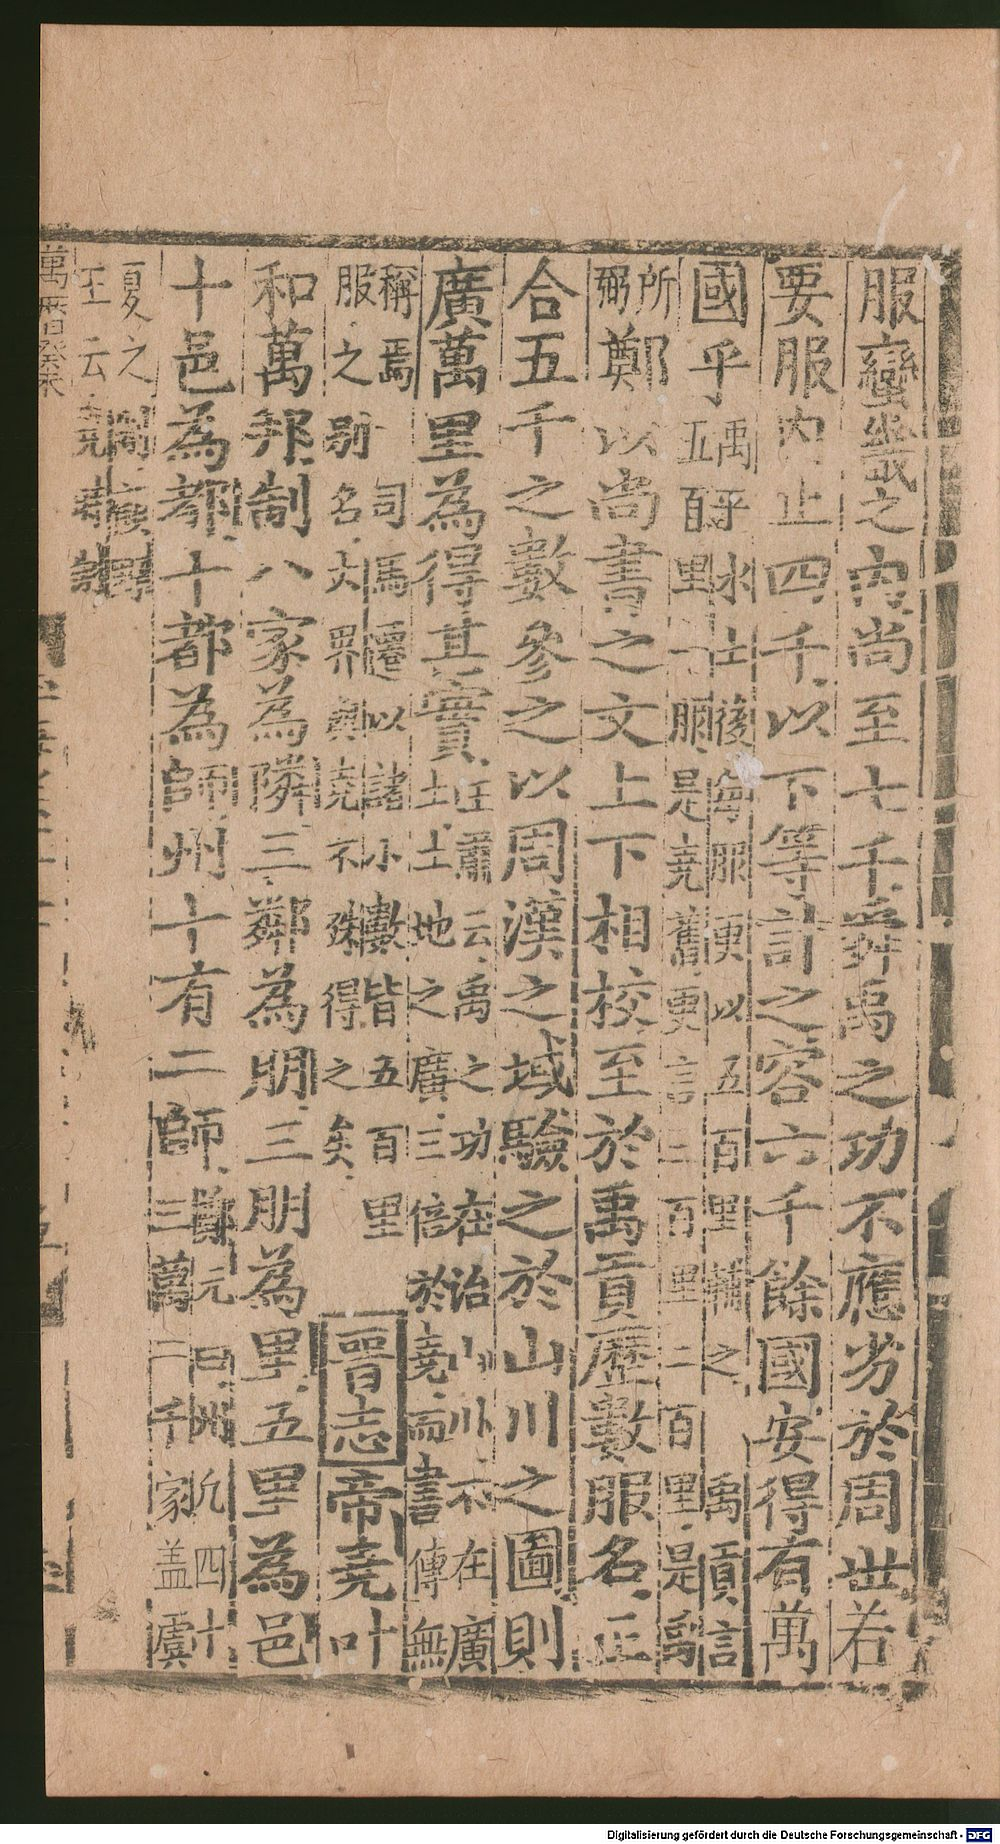 服蠻夷之內尚至七千舜禹之功不應劣於周世若
要服內止四千以下等計之容六千餘國安得有萬
國乎
禹平水土後每服更以五百里輔之禹貢言
五百里一服是堯舊更言三百里二百里是
所
弼鄭以尚書之文上下相校至於禹貢歷數服名正
合五千之數參之以周漢之域驗之於山川之圖則
廣萬里為得其實
王肅云禹之功在治山川不在廣
土土地之廣三倍於堯而書傳無
稱焉司馬遷以諸小數皆五百里
服之別名大界與堯不殊得之矣
晉志帝堯叶
和萬邦制八家為隣三鄰為朋三朋為里五里為邑
十邑為都十都為師州十有二師
鄭元曰州凡四十
三萬二千家盖虞
夏之
云
萬曆
Digitalisierung gefördert durch die Deutsche Forschungsgemeinschaft - DFG